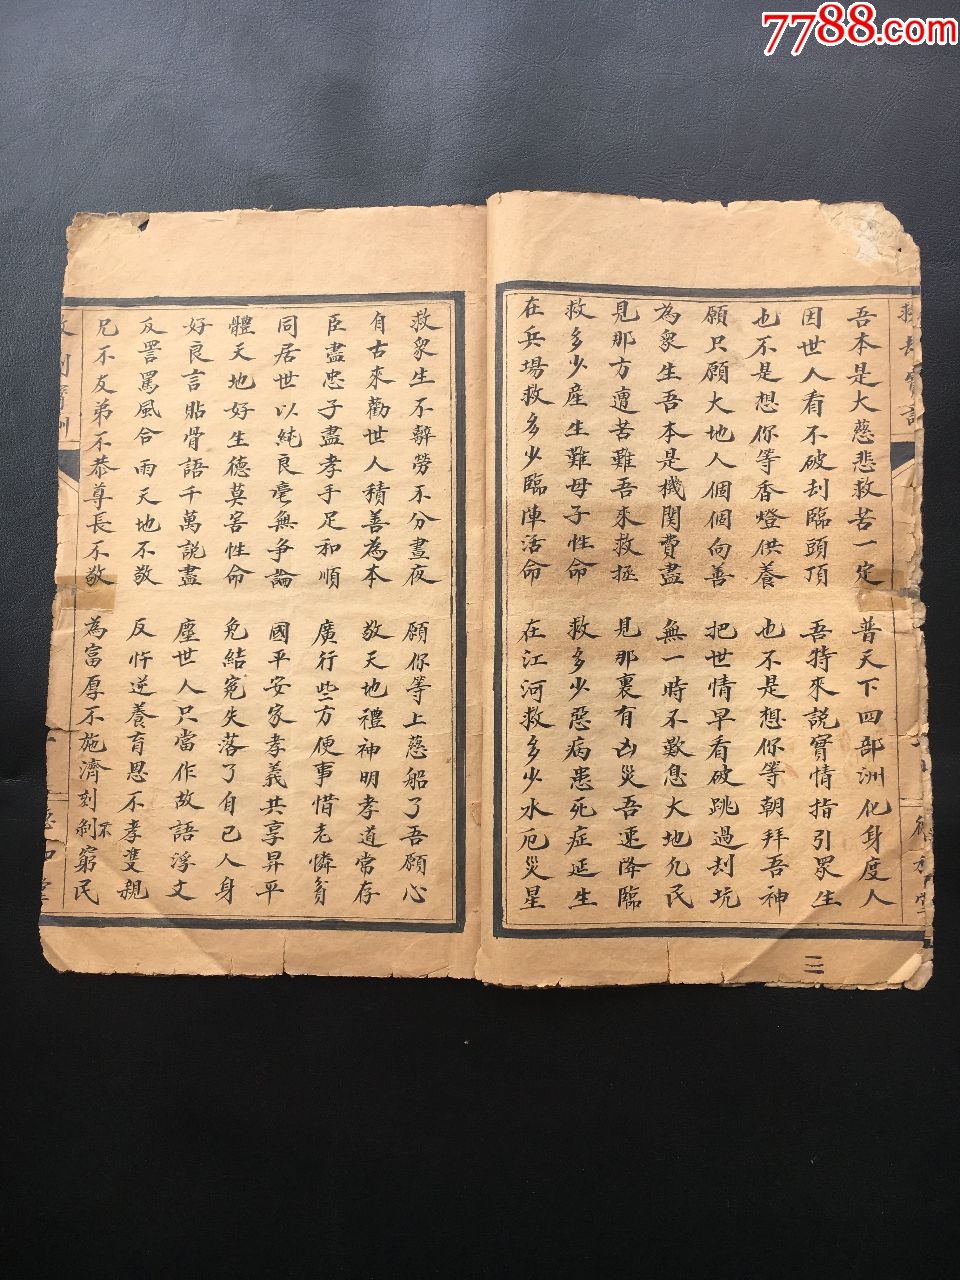 7788.com
吾本是大慈悲救苦一定 普天下四部洲化身度人
因世人看不破刦臨頭頂 吾特來說實情指引眾生
也不是想你等香燈供養 也不是想你等朝拜吾神
願只願大地人個個向善 把世情早看破跳過刦坑
為眾生吾本是機關費盡 無一時不歎息大地民
見那方遭苦難吾來救拯 見那裏有凶災吾速降臨
救多少產生難母子性命 救多少惡病患死症延生
在兵場救多少臨陣活命 在江河救多少水厄災星
三
救眾生不辭勞不分晝夜 願你等上慈船了吾願心
自古來勸世人積善為本 敬天地禮神明孝道常存
臣盡忠子盡孝手足和順 廣行些方便事惜老憐貧
同居世以純良毫無爭論 國平安家孝義共享昇平
體天地好生德莫害性命 免結冤失落了自己人身
好良言貼骨語千萬說盡 塵世人只當作故語浮文
反詈罵風合雨天地不敬 反忤逆養育恩不孝雙親
兄不友弟不恭尊長不敬 為富厚不施濟刻剝窮民